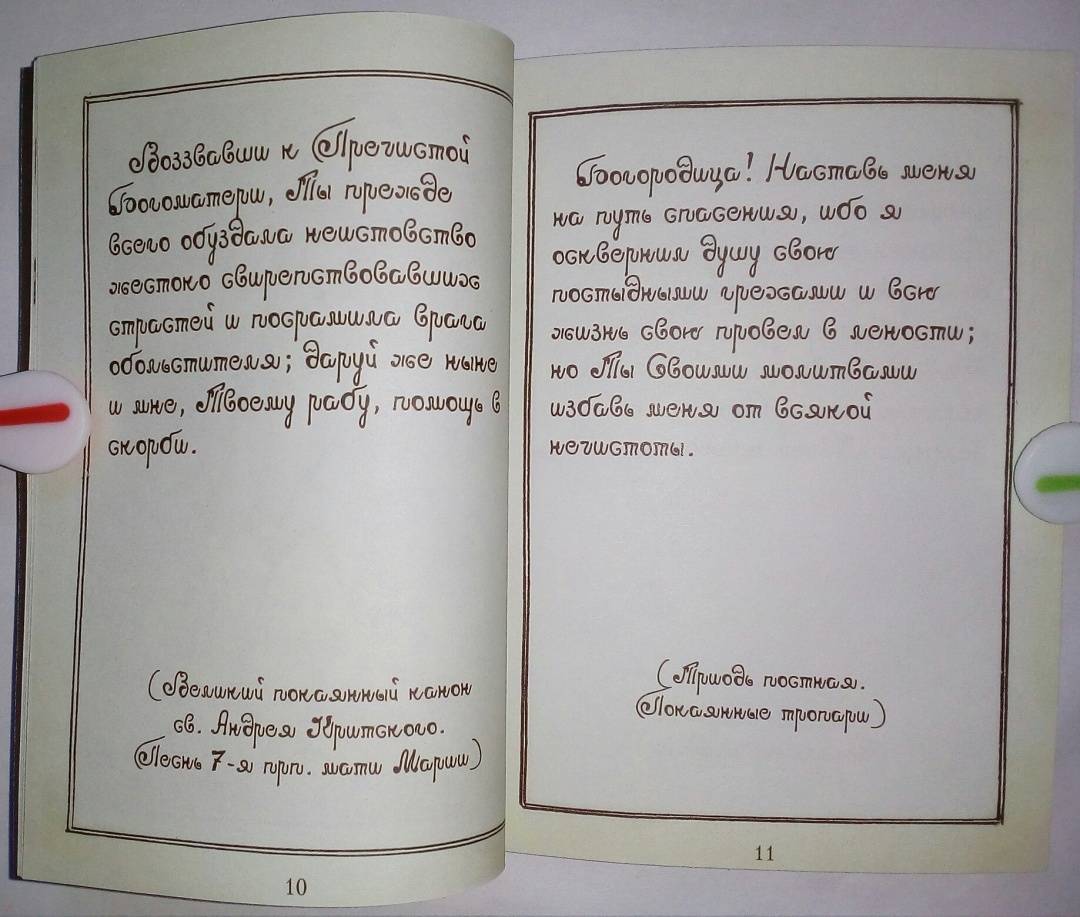 Воззвавши к Пречистой
Богоматери, Ты прежде
всего обуздала неистовство
жестоко свирепствовавших
страстей и посрамила врага
обольстителя; даруй же ныне
и мне, Твоему рабу, помощь в
скорби.
(Великий покаянный канон
св. Андрея Критского.
Песнь 7-я прп. мати Марии)
10
Богородица! Наставь меня
на путь спасения, ибо я
осквернил душу свою
постыдными грехами и всю
жизнь свою провел в лености;
но Ты Своими молитвами
избавь меня от всякой
нечистоты.
(Триодь постная.
Покаянные тропари)
11